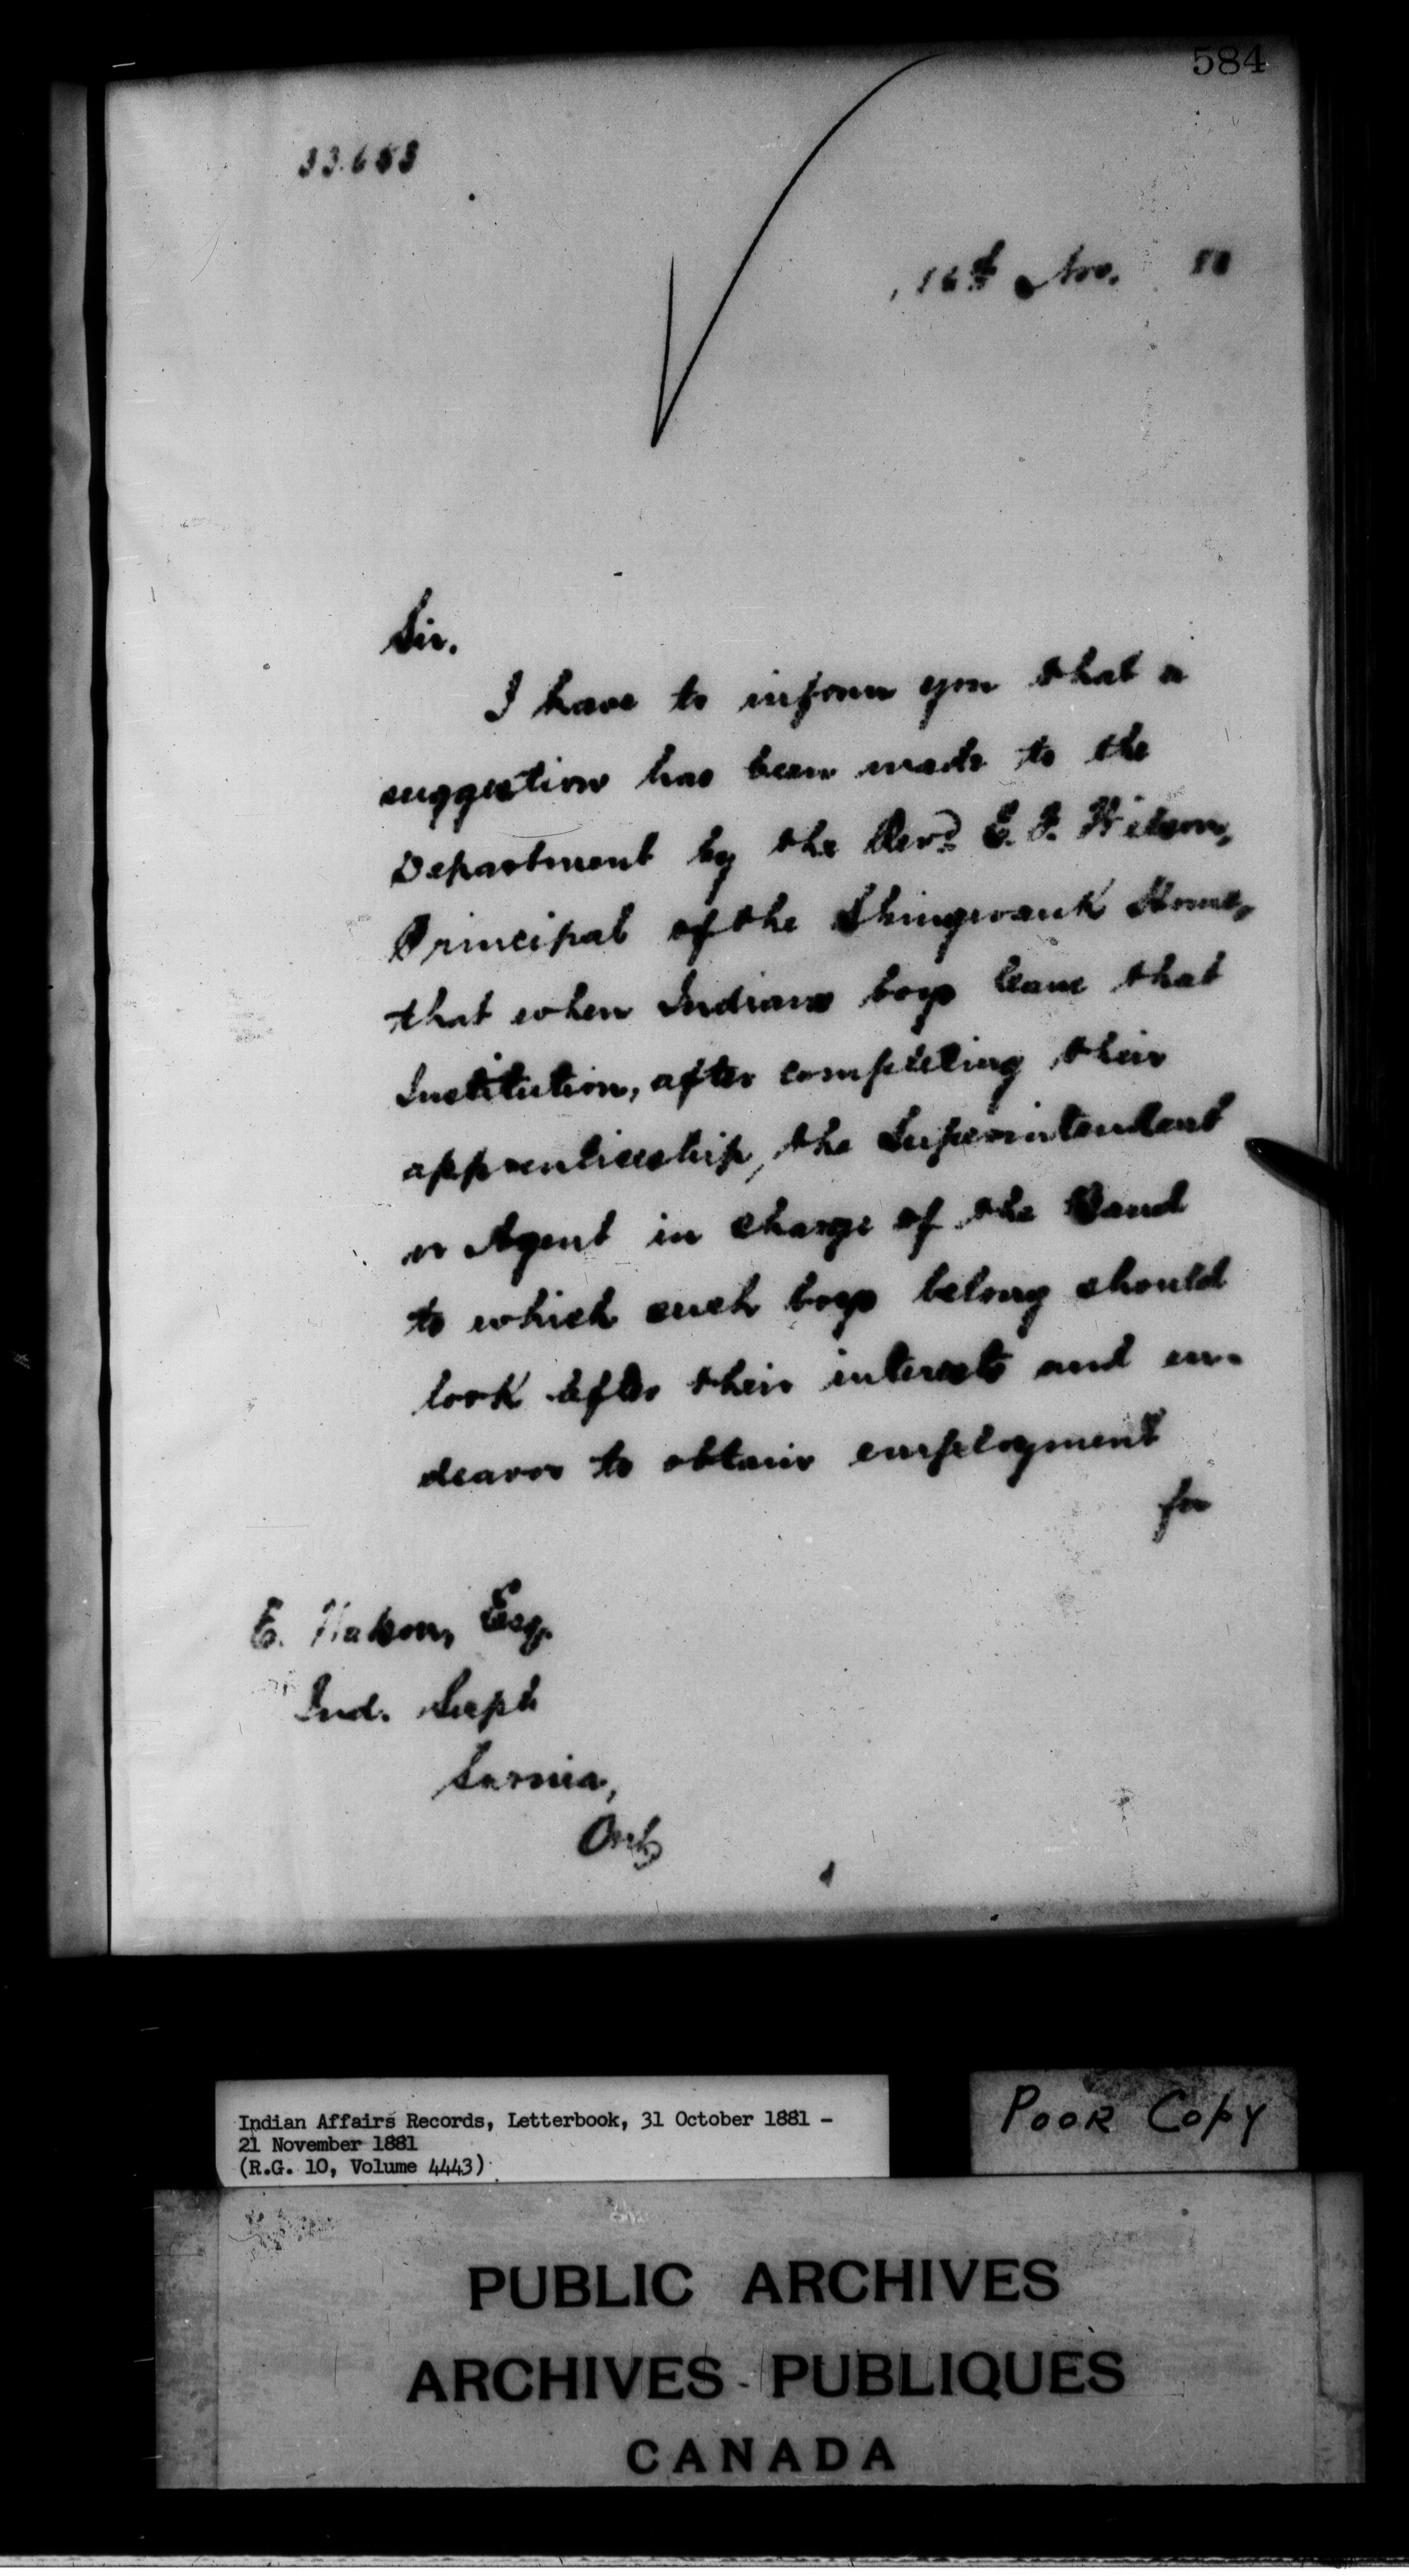 584
33.653
16th Nov. 81
Sir.
I have to inform you that a
suggestion has been made to the
Department by the Revd. E. F. Wilson,
Principal of the Shingwauk Home,
that when Indian boys leave that
Institution, after completing their
apprenticeship, the Superintendent
or Agent in charge of the Band
to which such boys belong should
look after their interests and en-
deavor to obtain employment
for
E. Watson, Esq.
Ind. Supt
Sarnia,
Ont
Indian Affairs Records, Letterbook, 31 October 1881 -
21 November 1881
(R.G. 10, Volume 4443)
POOR COPY
PUBLIC ARCHIVES
ARCHIVES PUBLIQUES
CANADA